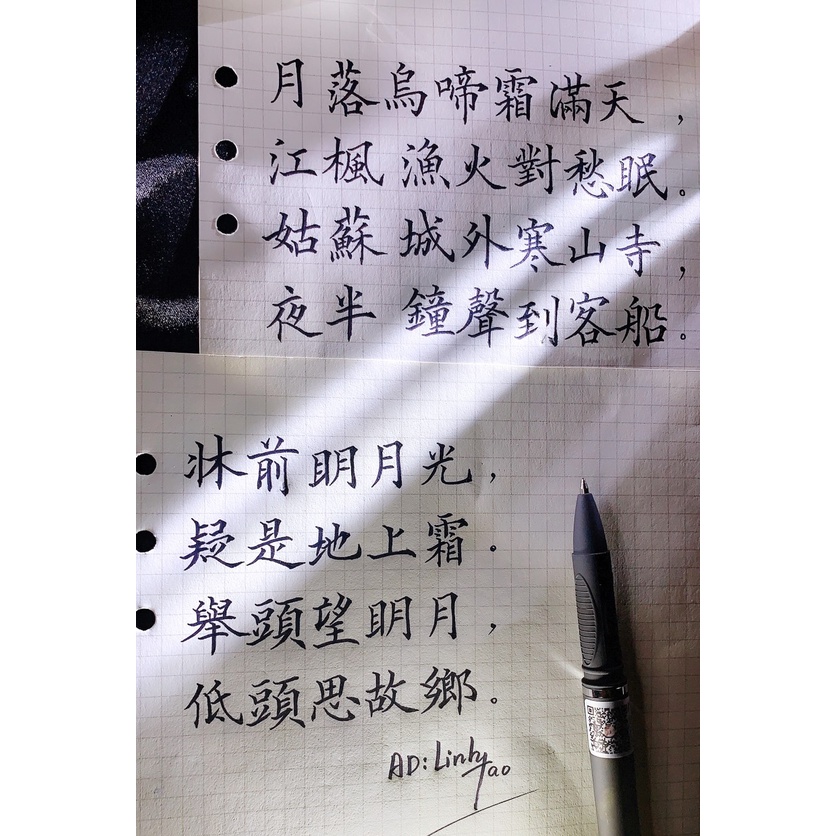 月落烏啼霜滿天，
江楓漁火對愁眠。
姑蘇城外寒山寺，
夜半鐘聲到客船。
牀前明月光，
疑是地上霜。
舉頭望明月，
低頭思故鄉。
AD: Tao